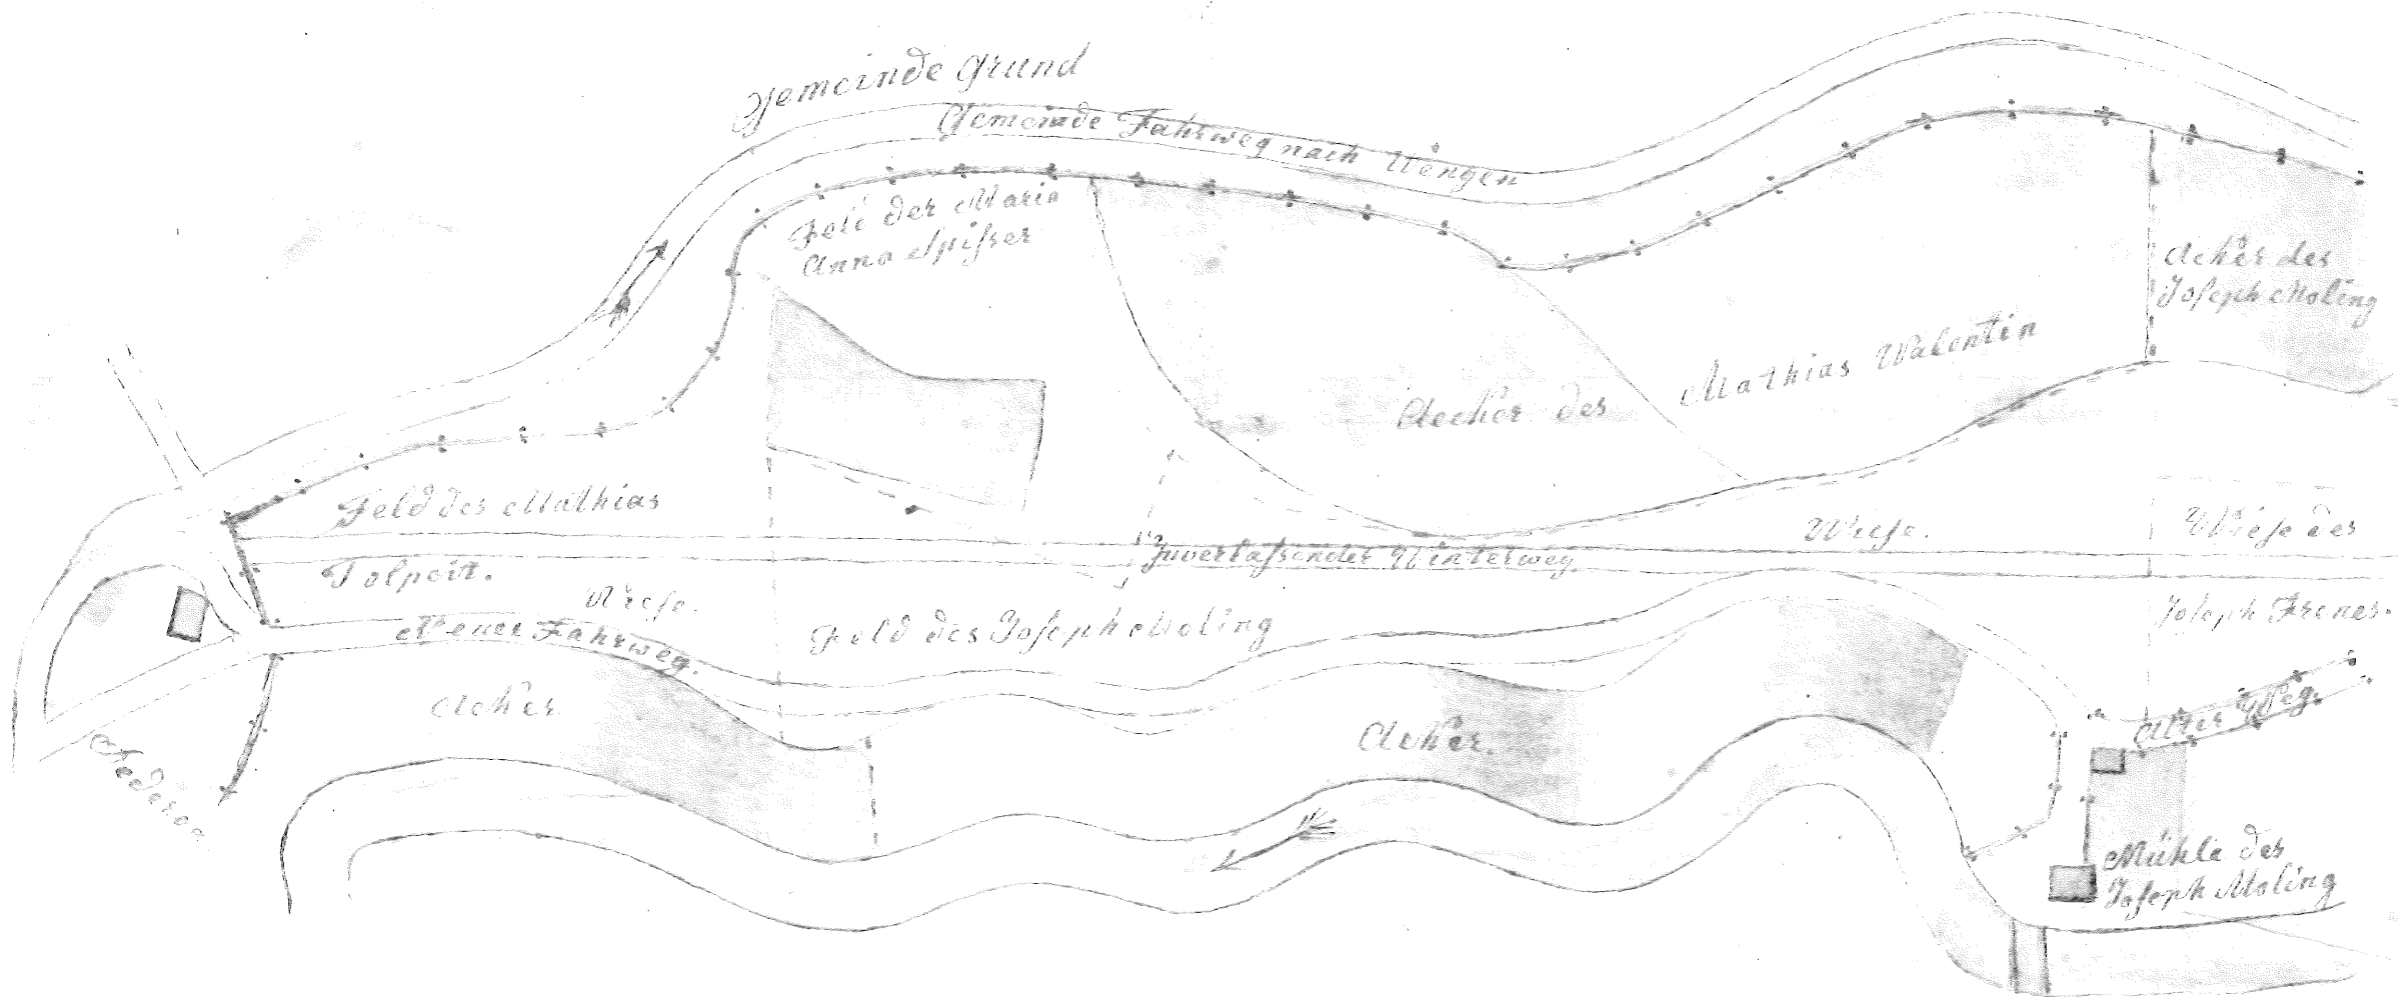 Gemeinde Grund
Gemeinde Fahrweg nach Wengen
Feld der Maria
Anna Spißer
Acker des
Joseph Moling
Aecker des Mathias Valentin
Feld des Mathias
Tolpeit.
Wiese.
Wiese.
Wiese des
Joseph Frenes.
zuverlaßender Winterweg
Neuer Fahrweg.
Feld des Joseph Moling
Acker
Acker.
Alter Weg.
Pederoa
Mühle des
Joseph Moling